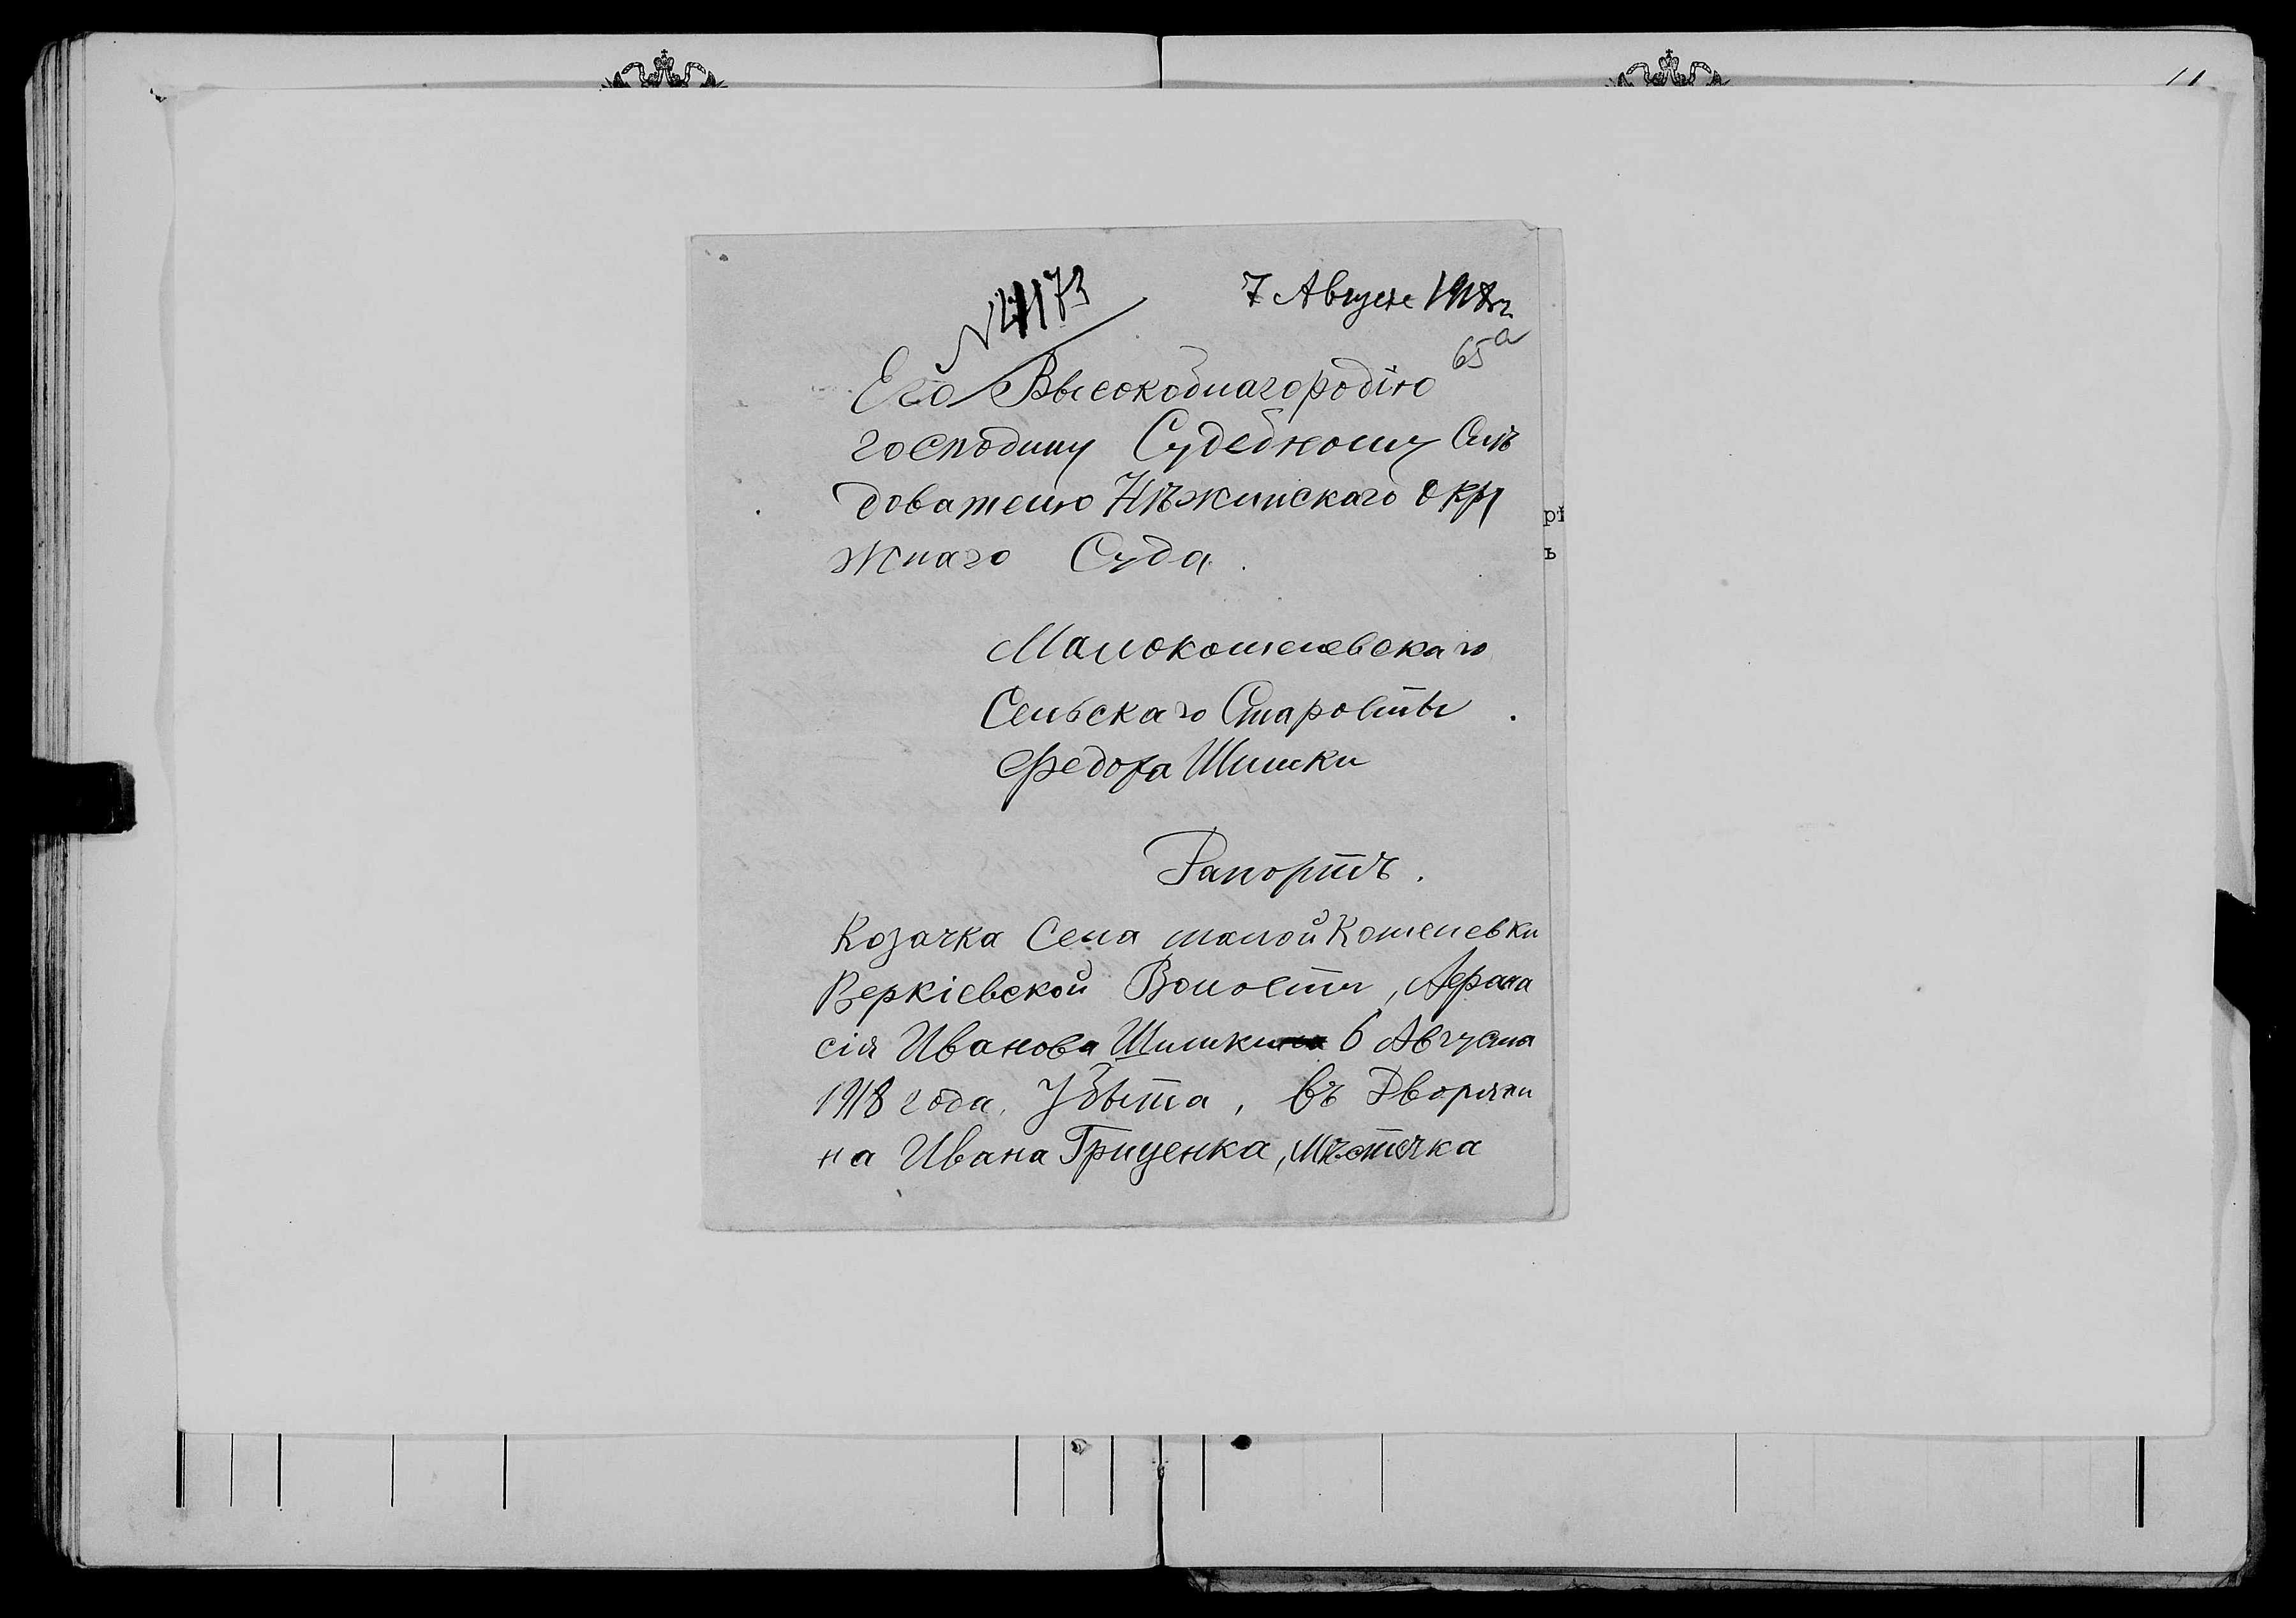 11
№ 4173
7 Августа 1918 г.
65а
Его Высокоблагородію
господину Судебному Слѣ
дователю Нѣжинскаго Окру
жнаго Суда.
Малокошелевскаго
Сельскаго Старосты
Федора Шишки
Рапортъ.
Козачка Села малой Кошелевки
Веркіевской Волости, Афана
сія Иванова Шишки 6 Августа
1918 года, Убыта, въ Дворяни
на Ивана Гриценка, Мѣстечка
рі
ъ